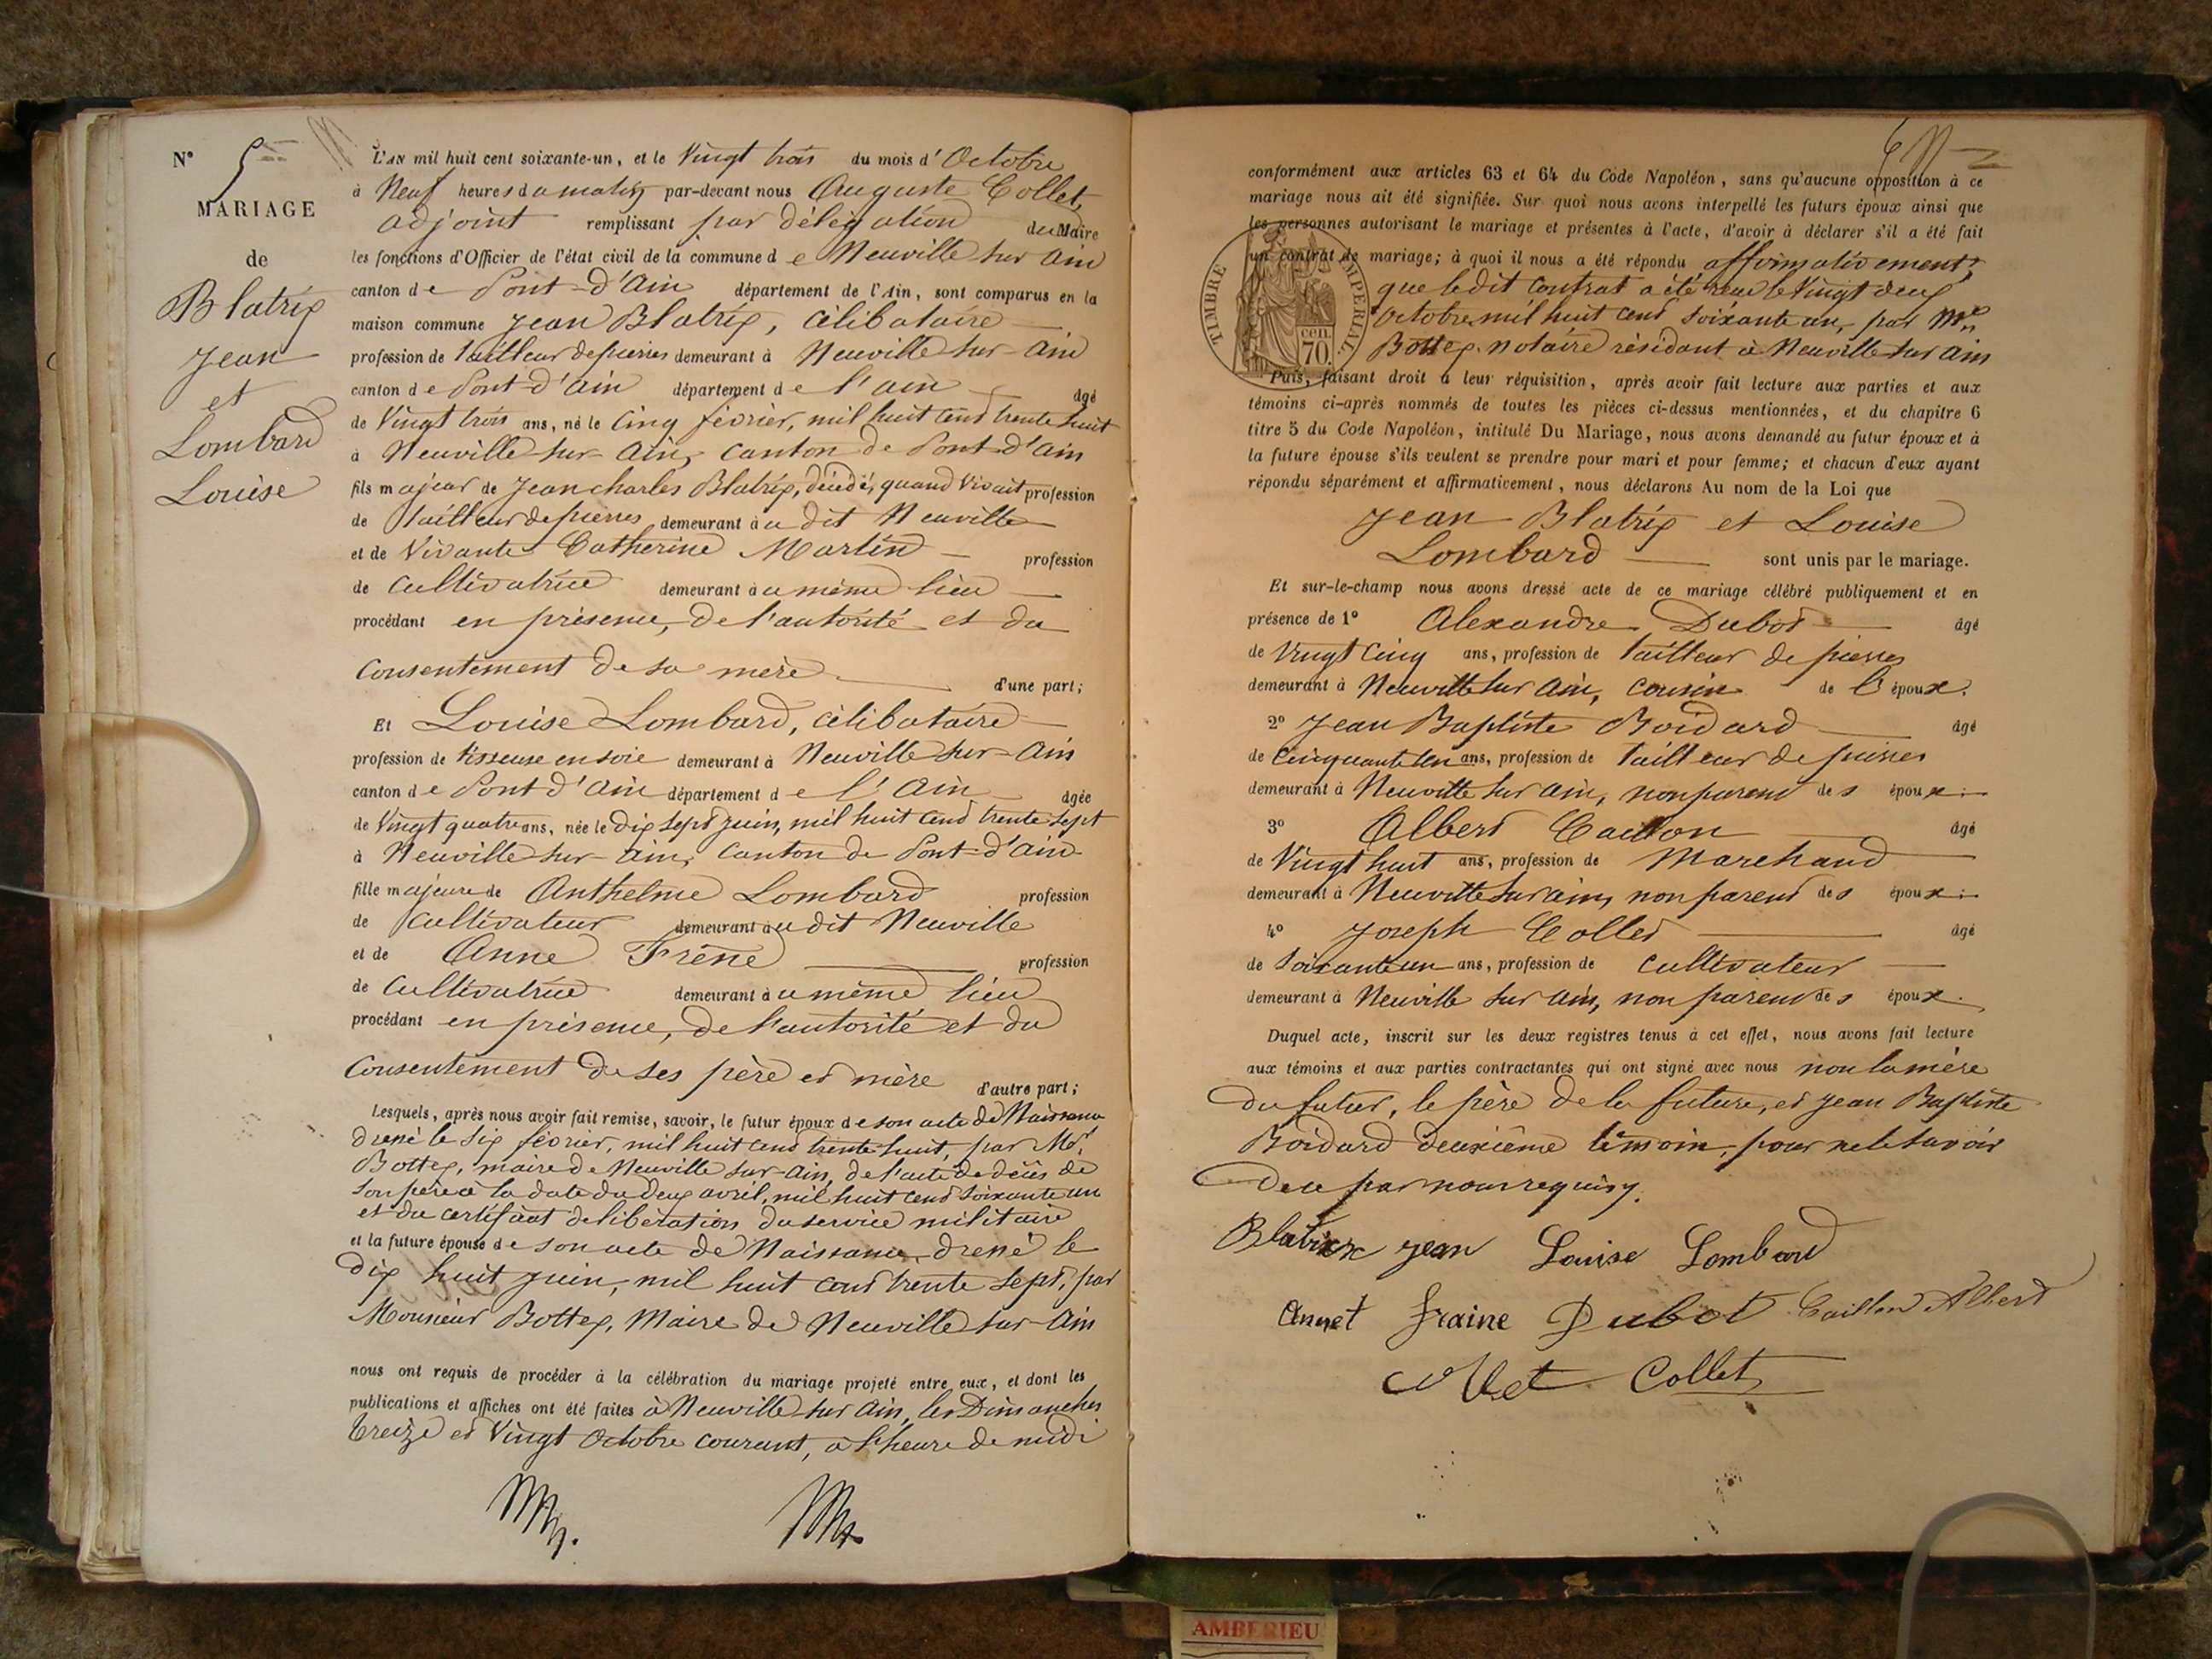 N° 5
MARIAGE
de
Blatrix
Jean
et
Lombard
Louise
L'AN mil huit cent soixante-un, et le Vingt trois du mois d'Octobre
à Neuf heures du matin par-devant nous Auguste Collet,
adjoint remplissant par délégation du Maire
les fonctions d'Officier de l'état civil de la commune de Neuville sur Ain
canton de Pont-d'Ain département de l'Ain, sont comparus en la
maison commune Jean Blatrix, célibataire
profession de tailleur de pierres demeurant à Neuville sur-Ain
canton de Pont-d'ain département de l'ain âgé
de Vingt trois ans, né le Cinq février, mil huit cend trente huit
à Neuville sur-Ain, canton de Pont-d'Ain
fils majeur de Jean charles Blatrix, décédé, quand vivait profession
de tailleur de pierres demeurant au dit Neuville
et de Vivante Catherine Martin profession
de Cultivatrice demeurant au même lieu
procédant en présence, de l'autorité et du
Consentement de sa mère d'une part;
Et Louise Lombard, célibataire
profession de tisseuse en soie demeurant à Neuville sur-Ain
canton de Pont-d'Ain département de l'Ain âgée
de Vingt quatre ans, née le Dix sept juin, mil huit cend trente sept
à Neuville sur-Ain, Canton de Pont-d'ain
fille majeure de Anthelme Lombard profession
de Cultivateur demeurant au dit Neuville
et de Anne Frène profession
de Cultivatrice demeurant au même lieu
procédant en présence, de l'autorité et du
Consentement de ses père et mère d'autre part;
Lesquels, après nous avoir fait remise, savoir, le futur époux de son acte de Naissance
dressé le Six février, mil huit cend trente huit, par Mr.
Bottex, maire de Neuville sur-Ain, de l'acte de décès de
son père à la date du deux avril, mil huit cend soixante un
et du certificat de libération du service militaire
et la future épouse de son acte de Naissance dressé le
dix huit juin, mil huit cend trente sept, par
Monsieur Bottex, Maire de Neuville sur-Ain
nous ont requis de procéder à la célébration du mariage projeté entre eux, et dont les
publications et affiches ont été faites à Neuville sur Ain, les Dimanches
treize et Vingt Octobre courant, à l'heure de midi
conformément aux articles 63 et 64 du Code Napoléon, sans qu'aucune opposition à ce
mariage nous ait été signifiée. Sur quoi nous avons interpellé les futurs époux ainsi que
les personnes autorisant le mariage et présentes à l'acte, d'avoir à déclarer s'il a été fait
un contrat de mariage; à quoi il nous a été répondu affirmativement,
que ledit contrat a été reçu le vingt deux
octobre, mil huit cend soixante un, par Me
Bottex. notaire résidant à Neuville sur Ain
TIMBRE IMPERIAL
70 cen
Puis, faisant droit à leur réquisition, après avoir fait lecture aux parties et aux
témoins ci-après nommés de toutes les pièces ci-dessus mentionnées, et du chapitre 6
titre 5 du Code Napoléon, intitulé Du Mariage, nous avons demandé au futur époux et à
la future épouse s'ils veulent se prendre pour mari et pour femme; et chacun d'eux ayant
répondu séparément et affirmativement, nous déclarons Au nom de la Loi que
Jean Blatrix et Louise
Lombard sont unis par le mariage.
Et sur-le-champ nous avons dressé acte de ce mariage célébré publiquement et en
présence de 1° Alexandre Dubot âgé
de vingt cinq ans, profession de tailleur de pierres
demeurant à Neuville sur Ain, cousin de l'époux.
2° Jean Baptiste Boidard âgé
de cinquante un ans, profession de tailleur de pierres
demeurant à Neuville sur ain, non parend des époux.
3° Albert Caillon âgé
de Vingt huit ans, profession de Marchand
demeurant à Neuville sur ain, non parend des époux.
4° Joseph Collet âgé
de soixante un ans, profession de cultivateur
demeurant à Neuville sur ain, non parend des époux.
Duquel acte, inscrit sur les deux registres tenus à cet effet, nous avons fait lecture
aux témoins et aux parties contractantes qui ont signé avec nous non la mère
du futur, le père de la future, et Jean Baptiste
Boidard deuxième témoin, pour ne le savoir
de ce par nous requis.
Blatrix Jean Louise Lombard
Annet fraine Dubot Caillon Albert
Collet Collet
AMBERIEU